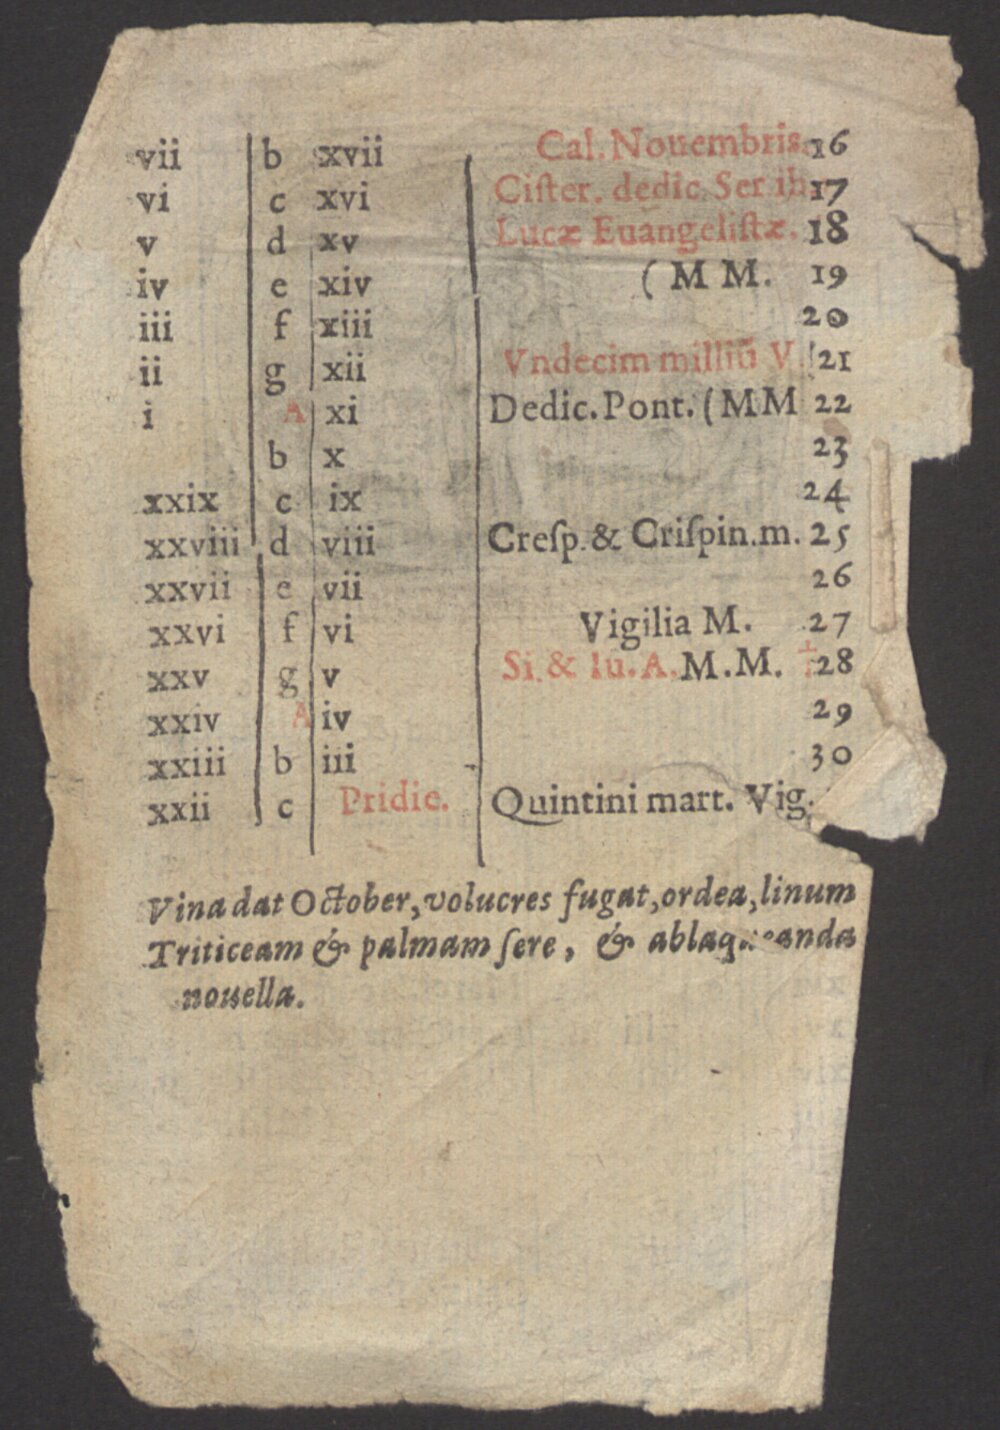 vii b xvii Cal. Nouembris. 16
vi c xvi Cister. dedic. Ser ih 17
v d xv Lucæ Euãngelistæ. 18
iv e xiv ( M M. 19
iii f xiii 20
ii g xii Vndecim milliũ V 21
i A xi Dedic. Pont. ( M M 22
b x 23
xxix c ix 24
xxviii d viii Creſp. & Criſpin. m. 25
xxvii e vii 26
xxvi f vi Vigilia M. 27
xxv g v Si. & Iu. A. M. M. † 28
xxiv A iv 29
xxiii b iii 30
xxii c Pridie. Quintini mart. Vig.
Vina dat October, volucres fugat, ordea, linum
Triticeam & palmam ſere, & ablaqueanda
nouella.